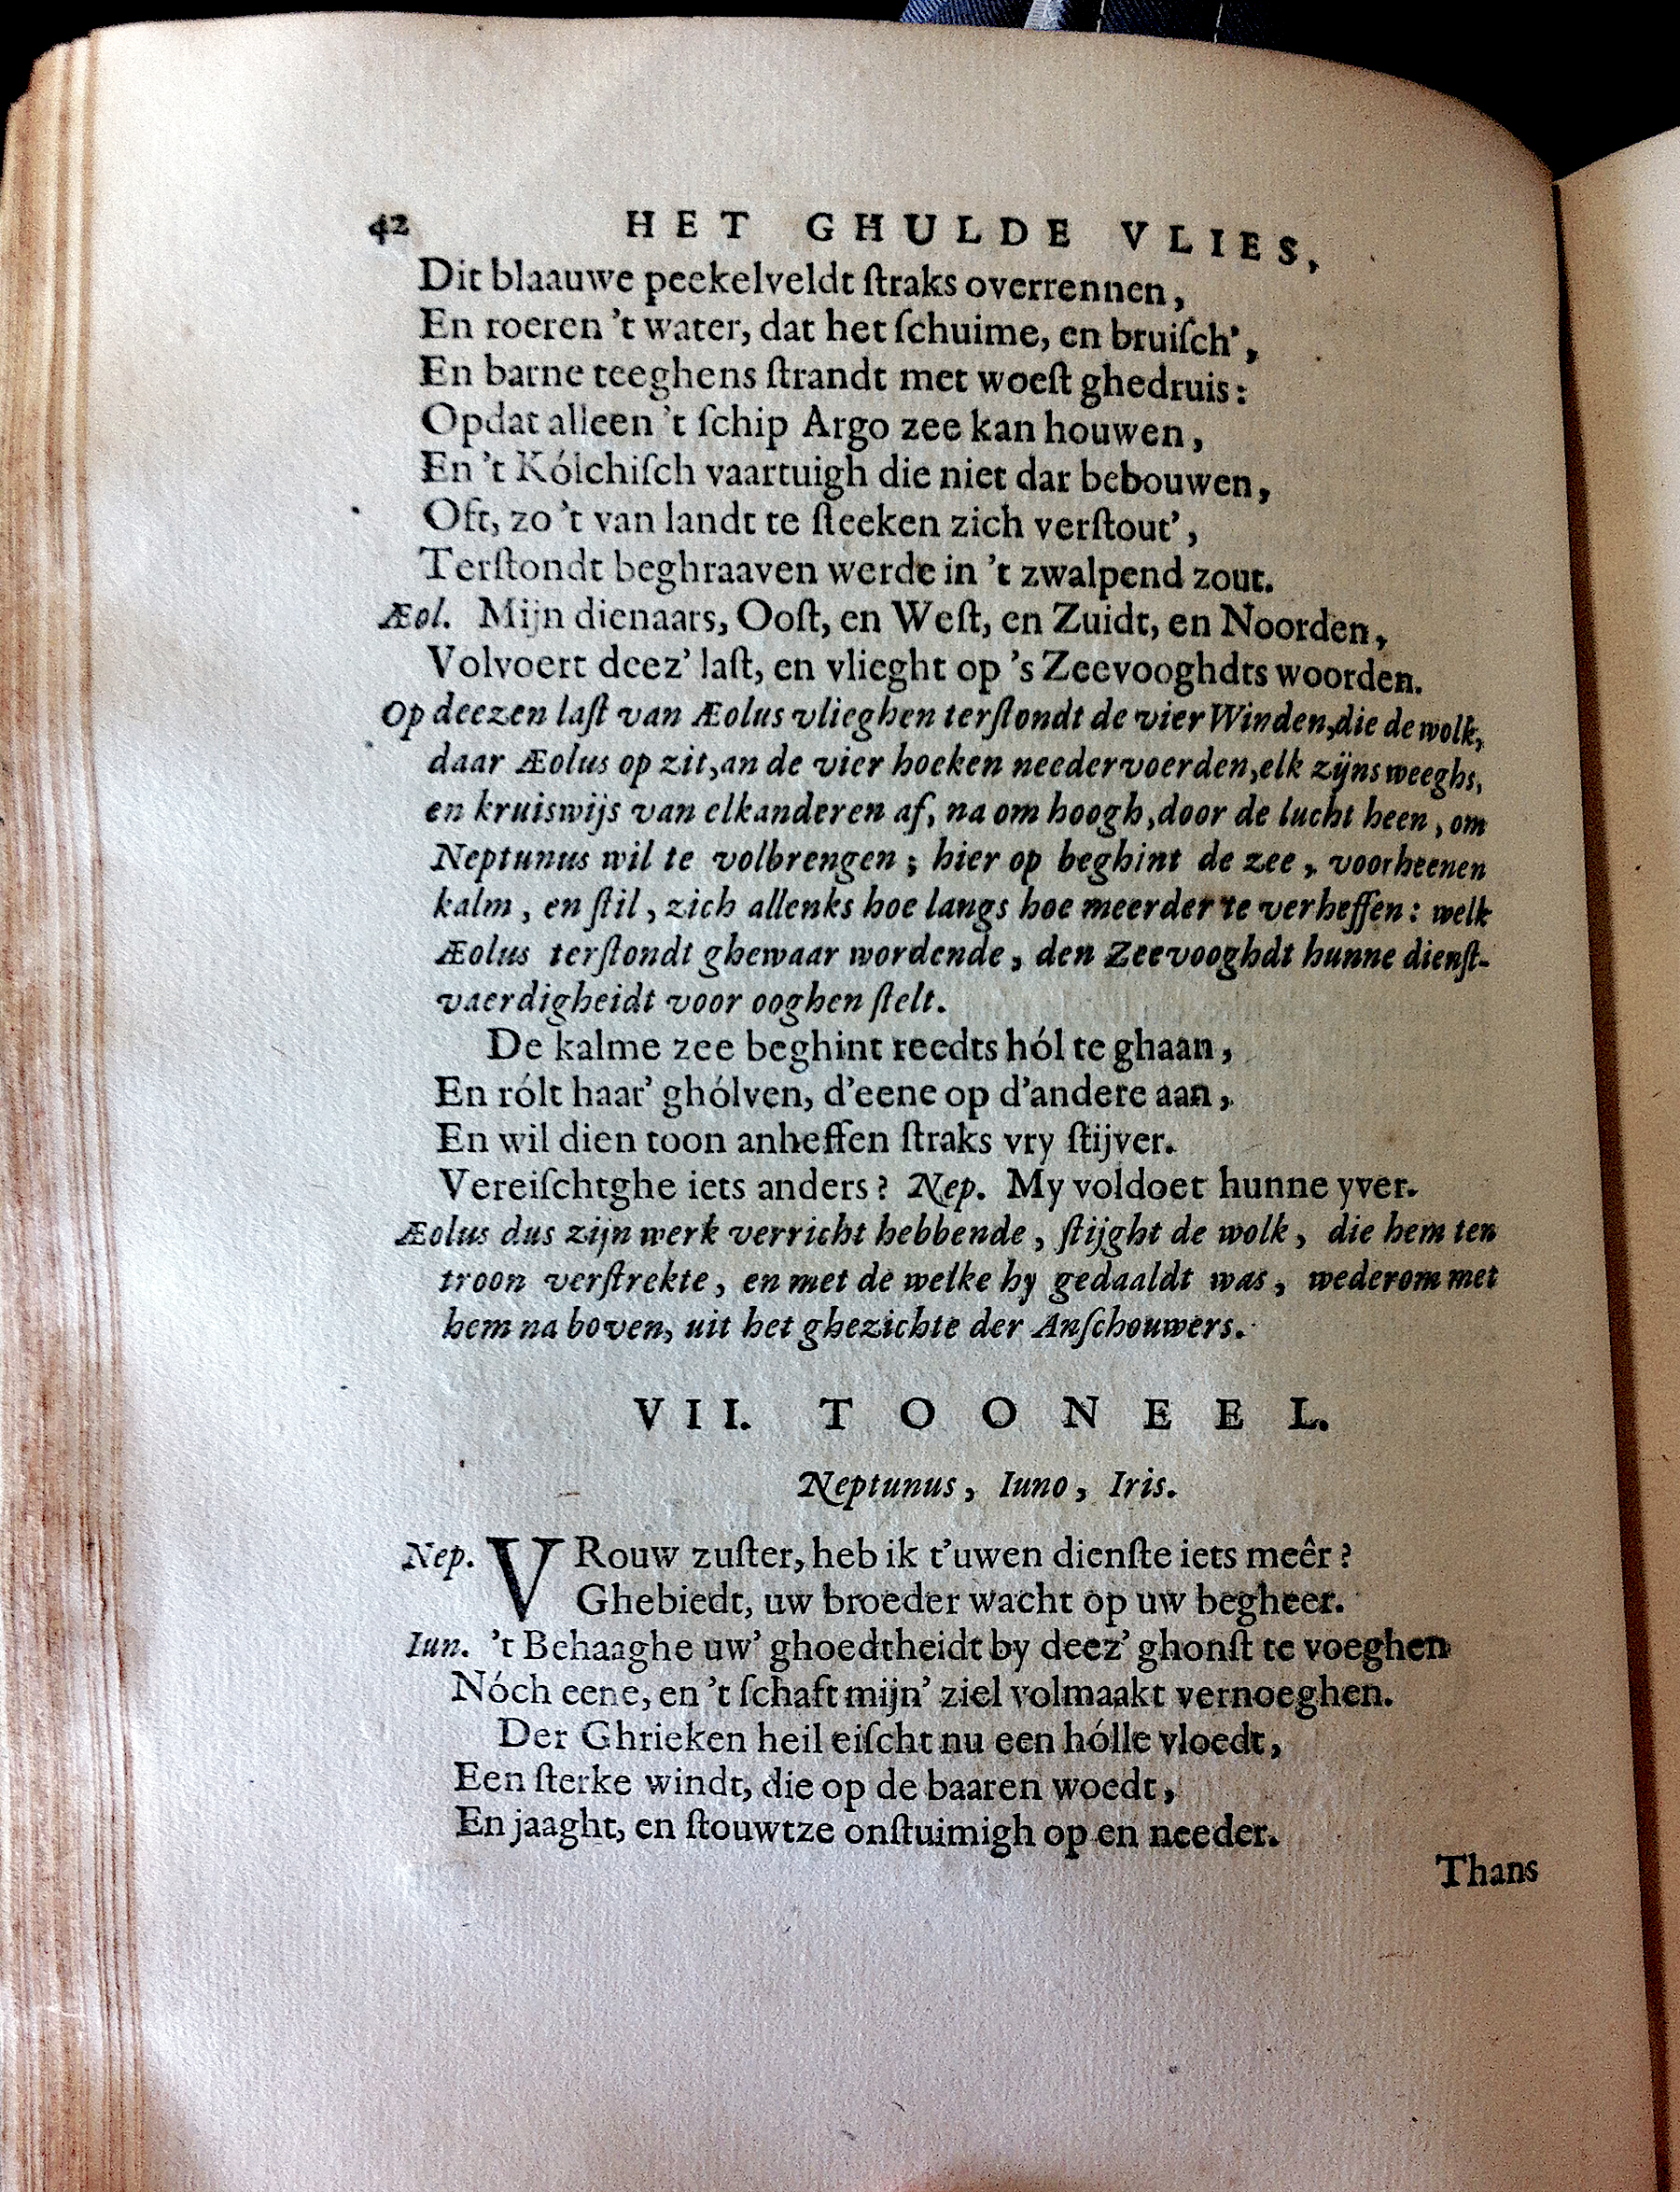 42 HET GHULDE VLIES,
Dit blaauwe peekelveldt ſtraks overrennen,
En roeren 't water, dat het ſchuime, en bruiſch',
En barne teeghens ſtrandt met woeſt ghedruis:
Opdat alleen 't ſchip Argo zee kan houwen,
En 't Kólchiſch vaartuigh die niet dar bebouwen,
Oft, zo 't van landt te ſteeken zich verſtout',
Terſtondt beghraaven werde in 't zwalpend zout.
Æol. Mijn dienaars, Ooſt, en Weſt, en Zuidt, en Noorden,
Volvoert deez' laſt, en vlieght op 's Zeevooghdts woorden.
Op deezen laſt van Æolus vlieghen terſtondt de vier Winden, die de wolk,
daar Æolus op zit, an de vier hoeken needervoerden, elk zijns weeghs,
en kruiswijs van elkanderen af, na om hoogh, door de lucht heen, om
Neptunus wil te volbrengen; hier op beghint de zee, voorheenen
kalm, en ſtil, zich allenks hoe langs hoe meerder te verheffen: welk
Æolus terſtondt ghewaar wordende, den Zeevooghdt hunne dienſt-
vaerdigheidt voor ooghen ſtelt.
De kalme zee beghint reedts hól te ghaan,
En rólt haar' ghólven, d'eene op d'andere aan,
En wil dien toon anheffen ſtraks vry ſtijver.
Vereiſchtghe iets anders? Nep. My voldoet hunne yver.
Æolus dus zijn werk verricht hebbende, ſtijght de wolk, die hem ten
troon verſtrekte, en met de welke hy gedaaldt was, wederom met
hem na boven, uit het ghezichte der Anſchouwers.
VII. TOONEEL.
Neptunus, Iuno, Iris.
Nep. VRouw zuſter, heb ik t'uwen dienſte iets meêr?
Ghebiedt, uw broeder wacht op uw begheer.
Iun. 't Behaaghe uw' ghoedtheidt by deez' ghonſt te voeghen
Nóch eene, en 't ſchaft mijn' ziel volmaakt vernoeghen.
Der Ghrieken heil eiſcht nu een hólle vloedt,
Een ſterke windt, die op de baaren woedt,
En jaaght, en ſtouwtze onſtuimigh op en needer.
Thans